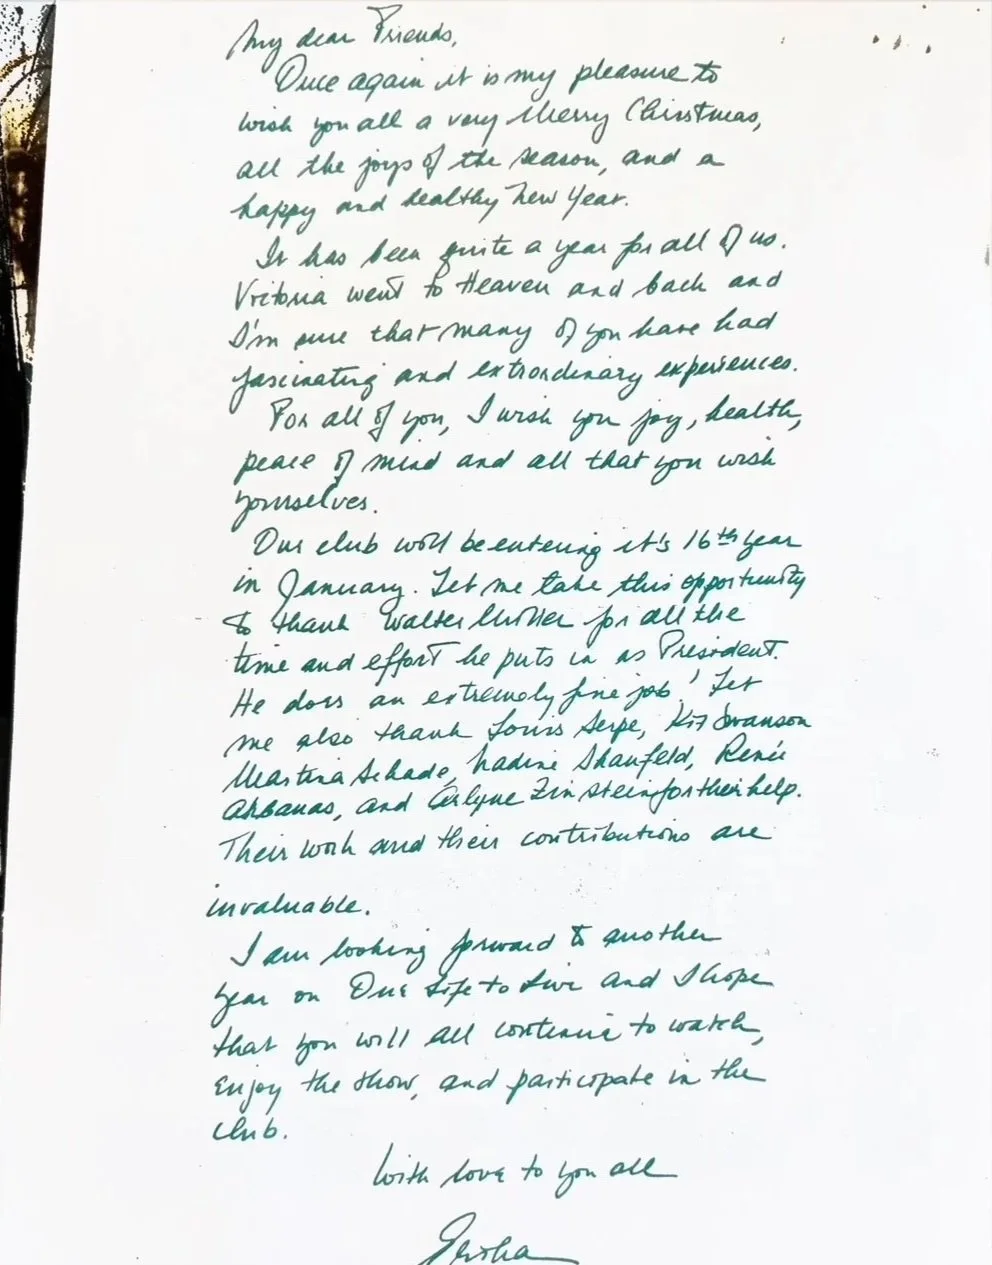 My dear Friends,
Once again it is my pleasure to
wish you all a very Merry Christmas,
all the joys of the season, and a
happy and healthy New Year.
It has been quite a year for all of us.
Victoria went to Heaven and back and
I'm sure that many of you have had
fascinating and extraordinary experiences.
For all of you, I wish you joy, health,
peace of mind and all that you wish
yourselves.
Our club will be entering it's 16th year
in January. Let me take this opportunity
to thank Walter Miller for all the
time and effort he puts in as President.
He does an extremely fine job! Let
me also thank Louis Serpe, Kit Swanson
Martina Schade, Nadine Shanfeld, Renée
and Arlyne Zinstein for their help.
Their work and their contributions are
invaluable.
I am looking forward to another
year on One Life to Live and I hope
that you will all continue to watch,
enjoy the show, and participate in the
club.
With love to you all